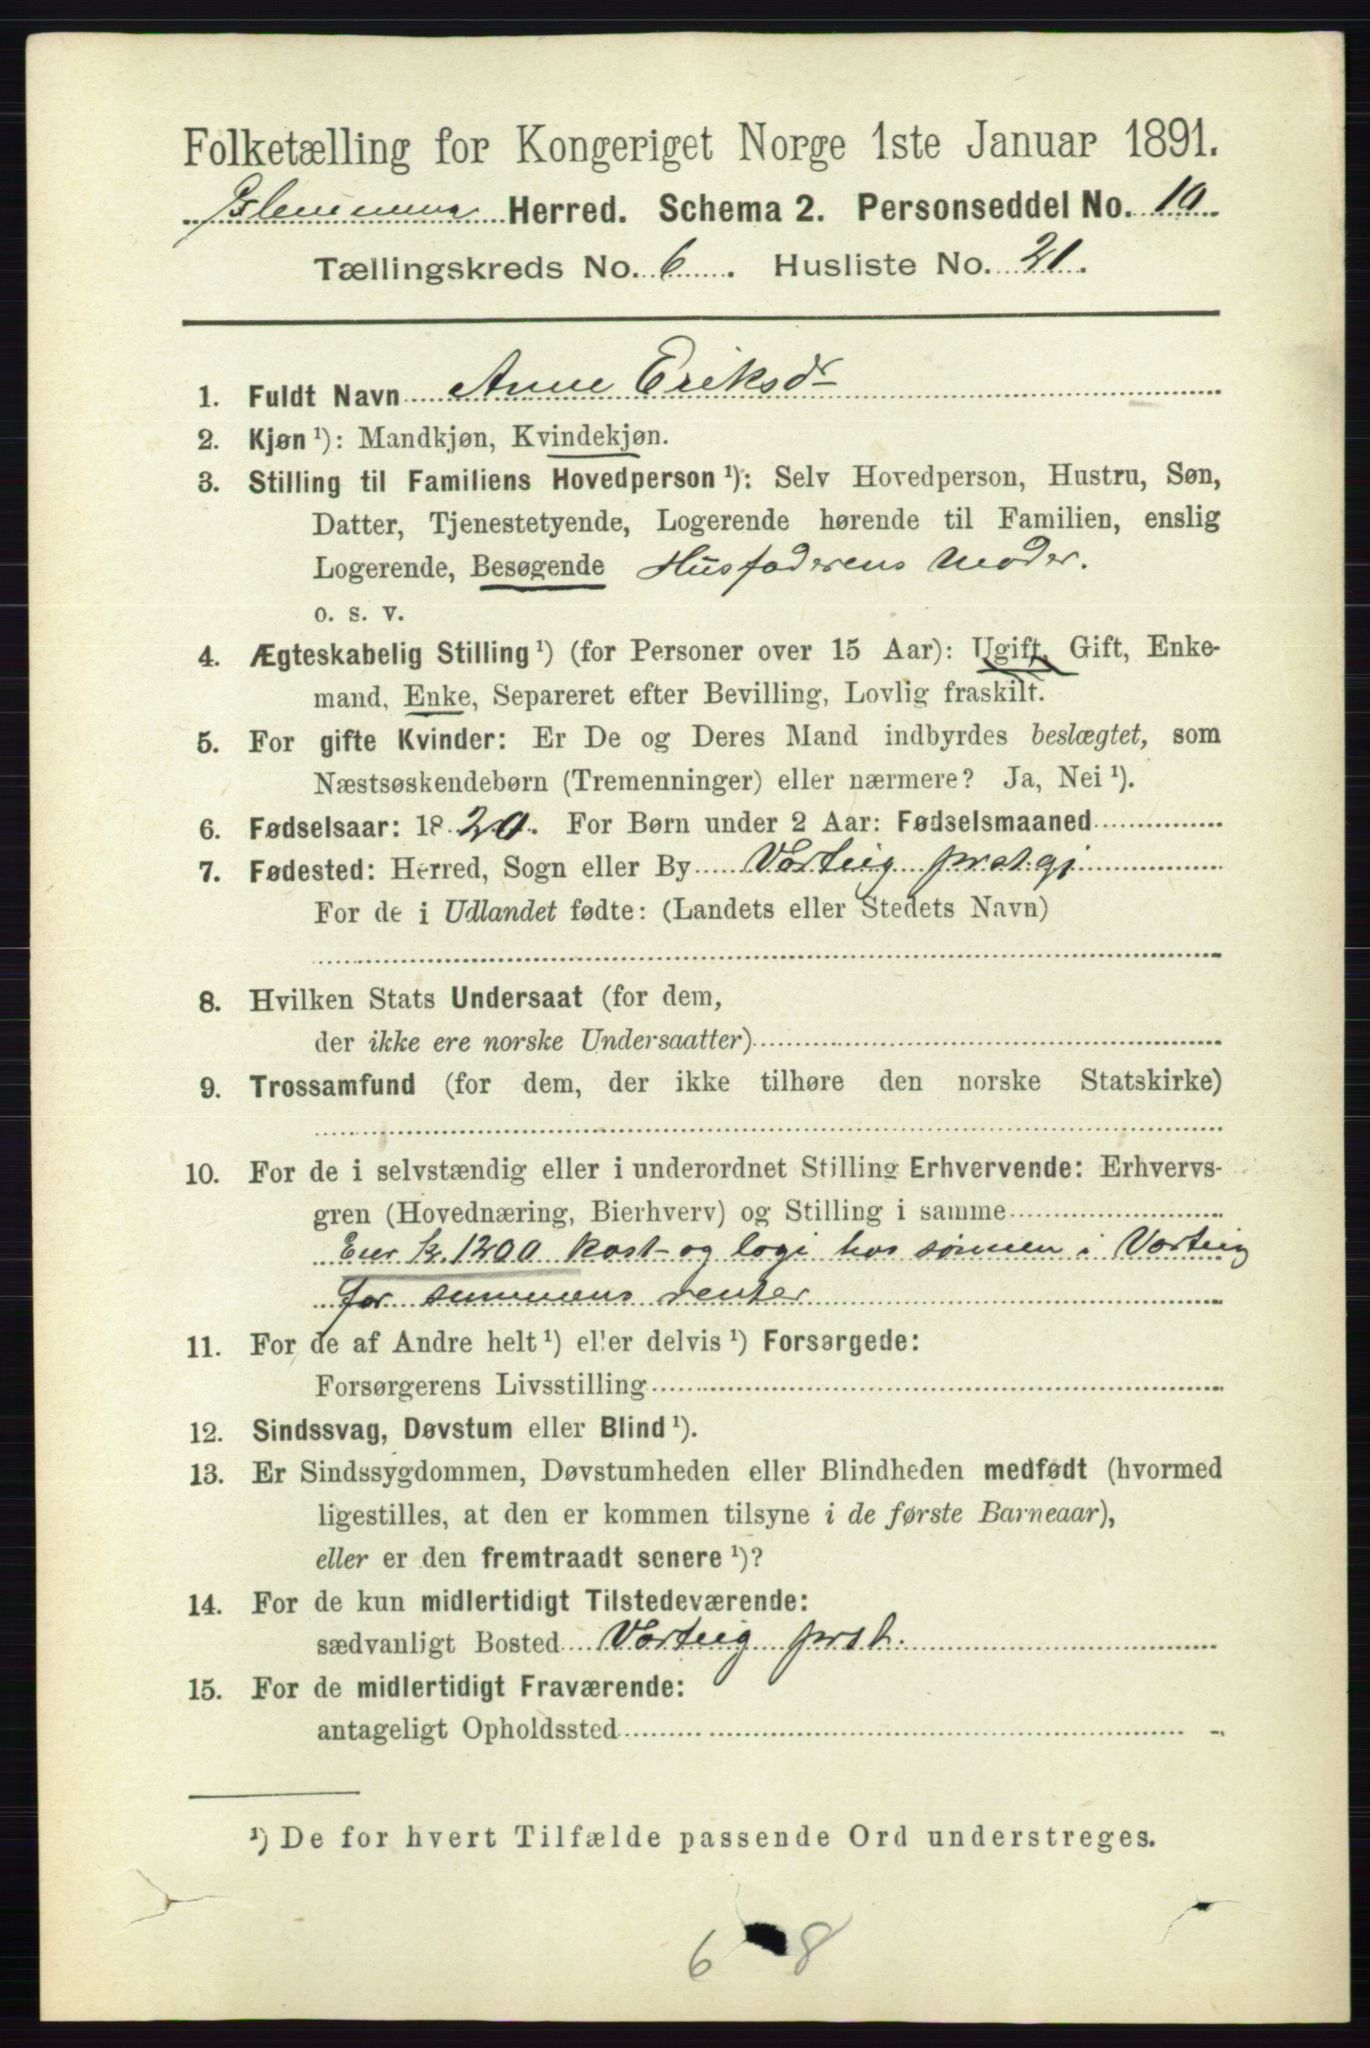 Folketælling for Kongeriget Norge 1ste Januar 1891.
Glemminge Herred. Schema 2. Personseddel No. 10
Tællingskreds No. 6. Husliste No. 21.
1. Fuldt Navn Anne Eriksdr
2. Kjøn ¹): Mandkjøn, Kvindekjøn.
3. Stilling til Familiens Hovedperson ¹): Selv Hovedperson, Hustru, Søn,
Datter, Tjenestetyende, Logerende hørende til Familien, enslig
Logerende, Besøgende Husfaderens Moder.
o. s. v.
4. Ægteskabelig Stilling ¹) (for Personer over 15 Aar): Ugift, Gift, Enke-
mand, Enke, Separeret efter Bevilling, Lovlig fraskilt.
5. For gifte Kvinder: Er De og Deres Mand indbyrdes beslægtet, som
Næstsøskendebørn (Tremenninger) eller nærmere? Ja, Nei ¹).
6. Fødselsaar: 1820. For Børn under 2 Aar: Fødselsmaaned
7. Fødested: Herred, Sogn eller By Varteig prstgj
For de i Udlandet fødte: (Landets eller Stedets Navn)
8. Hvilken Stats Undersaat (for dem,
der ikke ere norske Undersaatter)
9. Trossamfund (for dem, der ikke tilhøre den norske Statskirke)
10. For de i selvstændig eller i underordnet Stilling Erhvervende: Erhvervs-
gren (Hovednæring, Bierhverv) og Stilling i samme
Eier Kr. 1200 kost- og logi hos sønnen i Varteig
for summens renter
11. For de af Andre helt ¹) eller delvis ¹) Forsørgede:
Forsørgerens Livsstilling
12. Sindssvag, Døvstum eller Blind ¹).
13. Er Sindssygdommen, Døvstumheden eller Blindheden medfødt (hvormed
ligestilles, at den er kommen tilsyne i de første Barneaar),
eller er den fremtraadt senere ¹)?
14. For de kun midlertidigt Tilstedeværende:
sædvanligt Bosted Varteig prst.
15. For de midlertidigt Fraværende:
antageligt Opholdssted
¹) De for hvert Tilfælde passende Ord understreges.
6 8